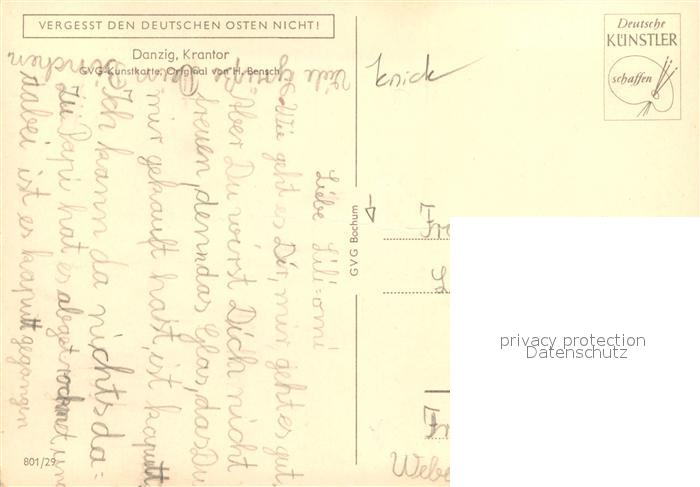 VERGESST DEN DEUTSCHEN OSTEN NICHT!
Danzig, Krantor
GVG-Kunstkarte, Original von H. Bensch
Deutsche
KÜNSTLER
schaffen
knick
Liebe Lili=omi
Wie geht es Dir, mir geht es gut.
Aber Du wirst Dich nicht
freuen, denn das Glas, das Du
mir gekauft hast, ist kaputt.
Ich kann da nichts da=
zu Papi hat es abgetrocknet, und
dabei ist es kaputt gegangen
Viele
GVG Bochum
Fr
L
Fr
Webe
801/29
privacy protection
Datenschutz